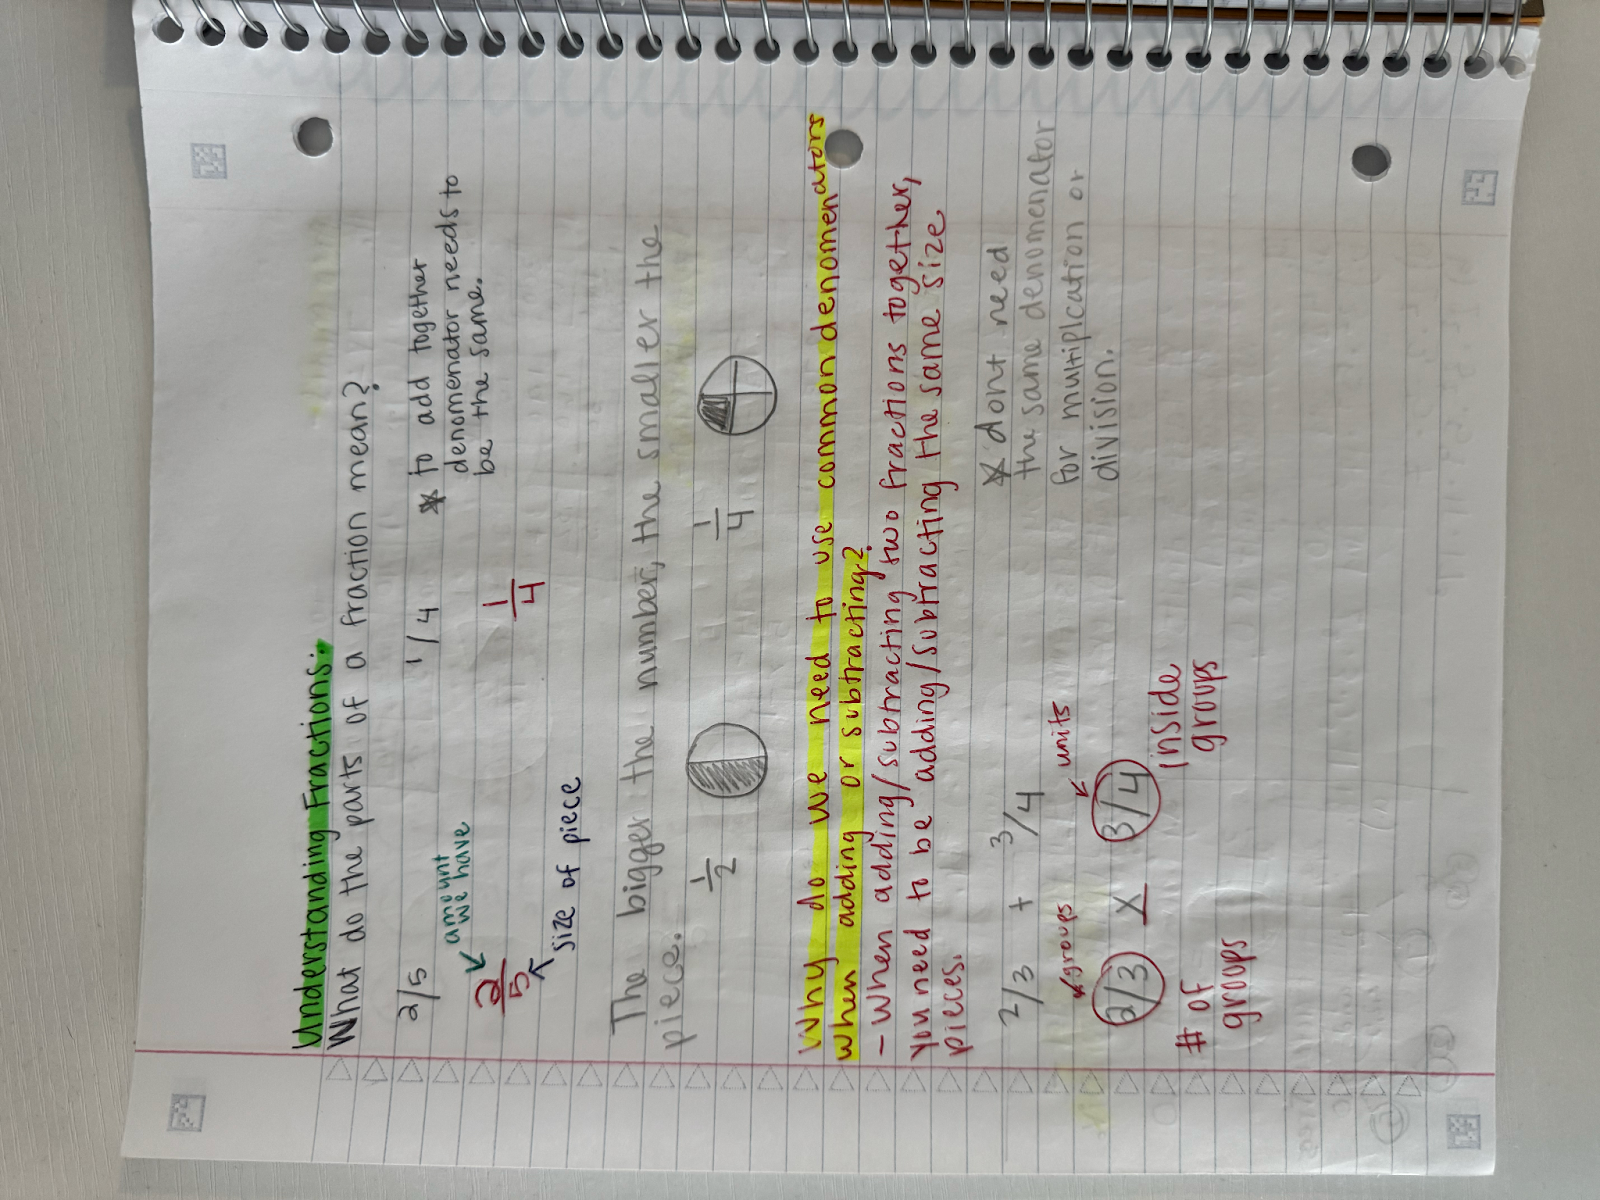 Understanding Fractions:
What do the parts of a fraction mean?
2/5 1/4 * to add together
denomenator needs to
be the same.
amount
we have
2/5 1/4
size of piece
The bigger the number, the smaller the
piece.
1/2 1/4
Why do we need to use common denomenators
when adding or subtracting?
- When adding/subtracting two fractions together,
you need to be adding/subtracting the same size
pieces.
2/3 + 3/4 * dont need
the same denomenator
for multiplcation or
division.
groups units
2/3 X 3/4
# of
groups
inside
groups